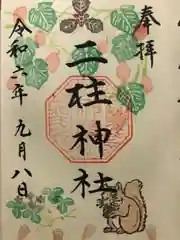 奉拝
三柱神社
令和六年九月八日